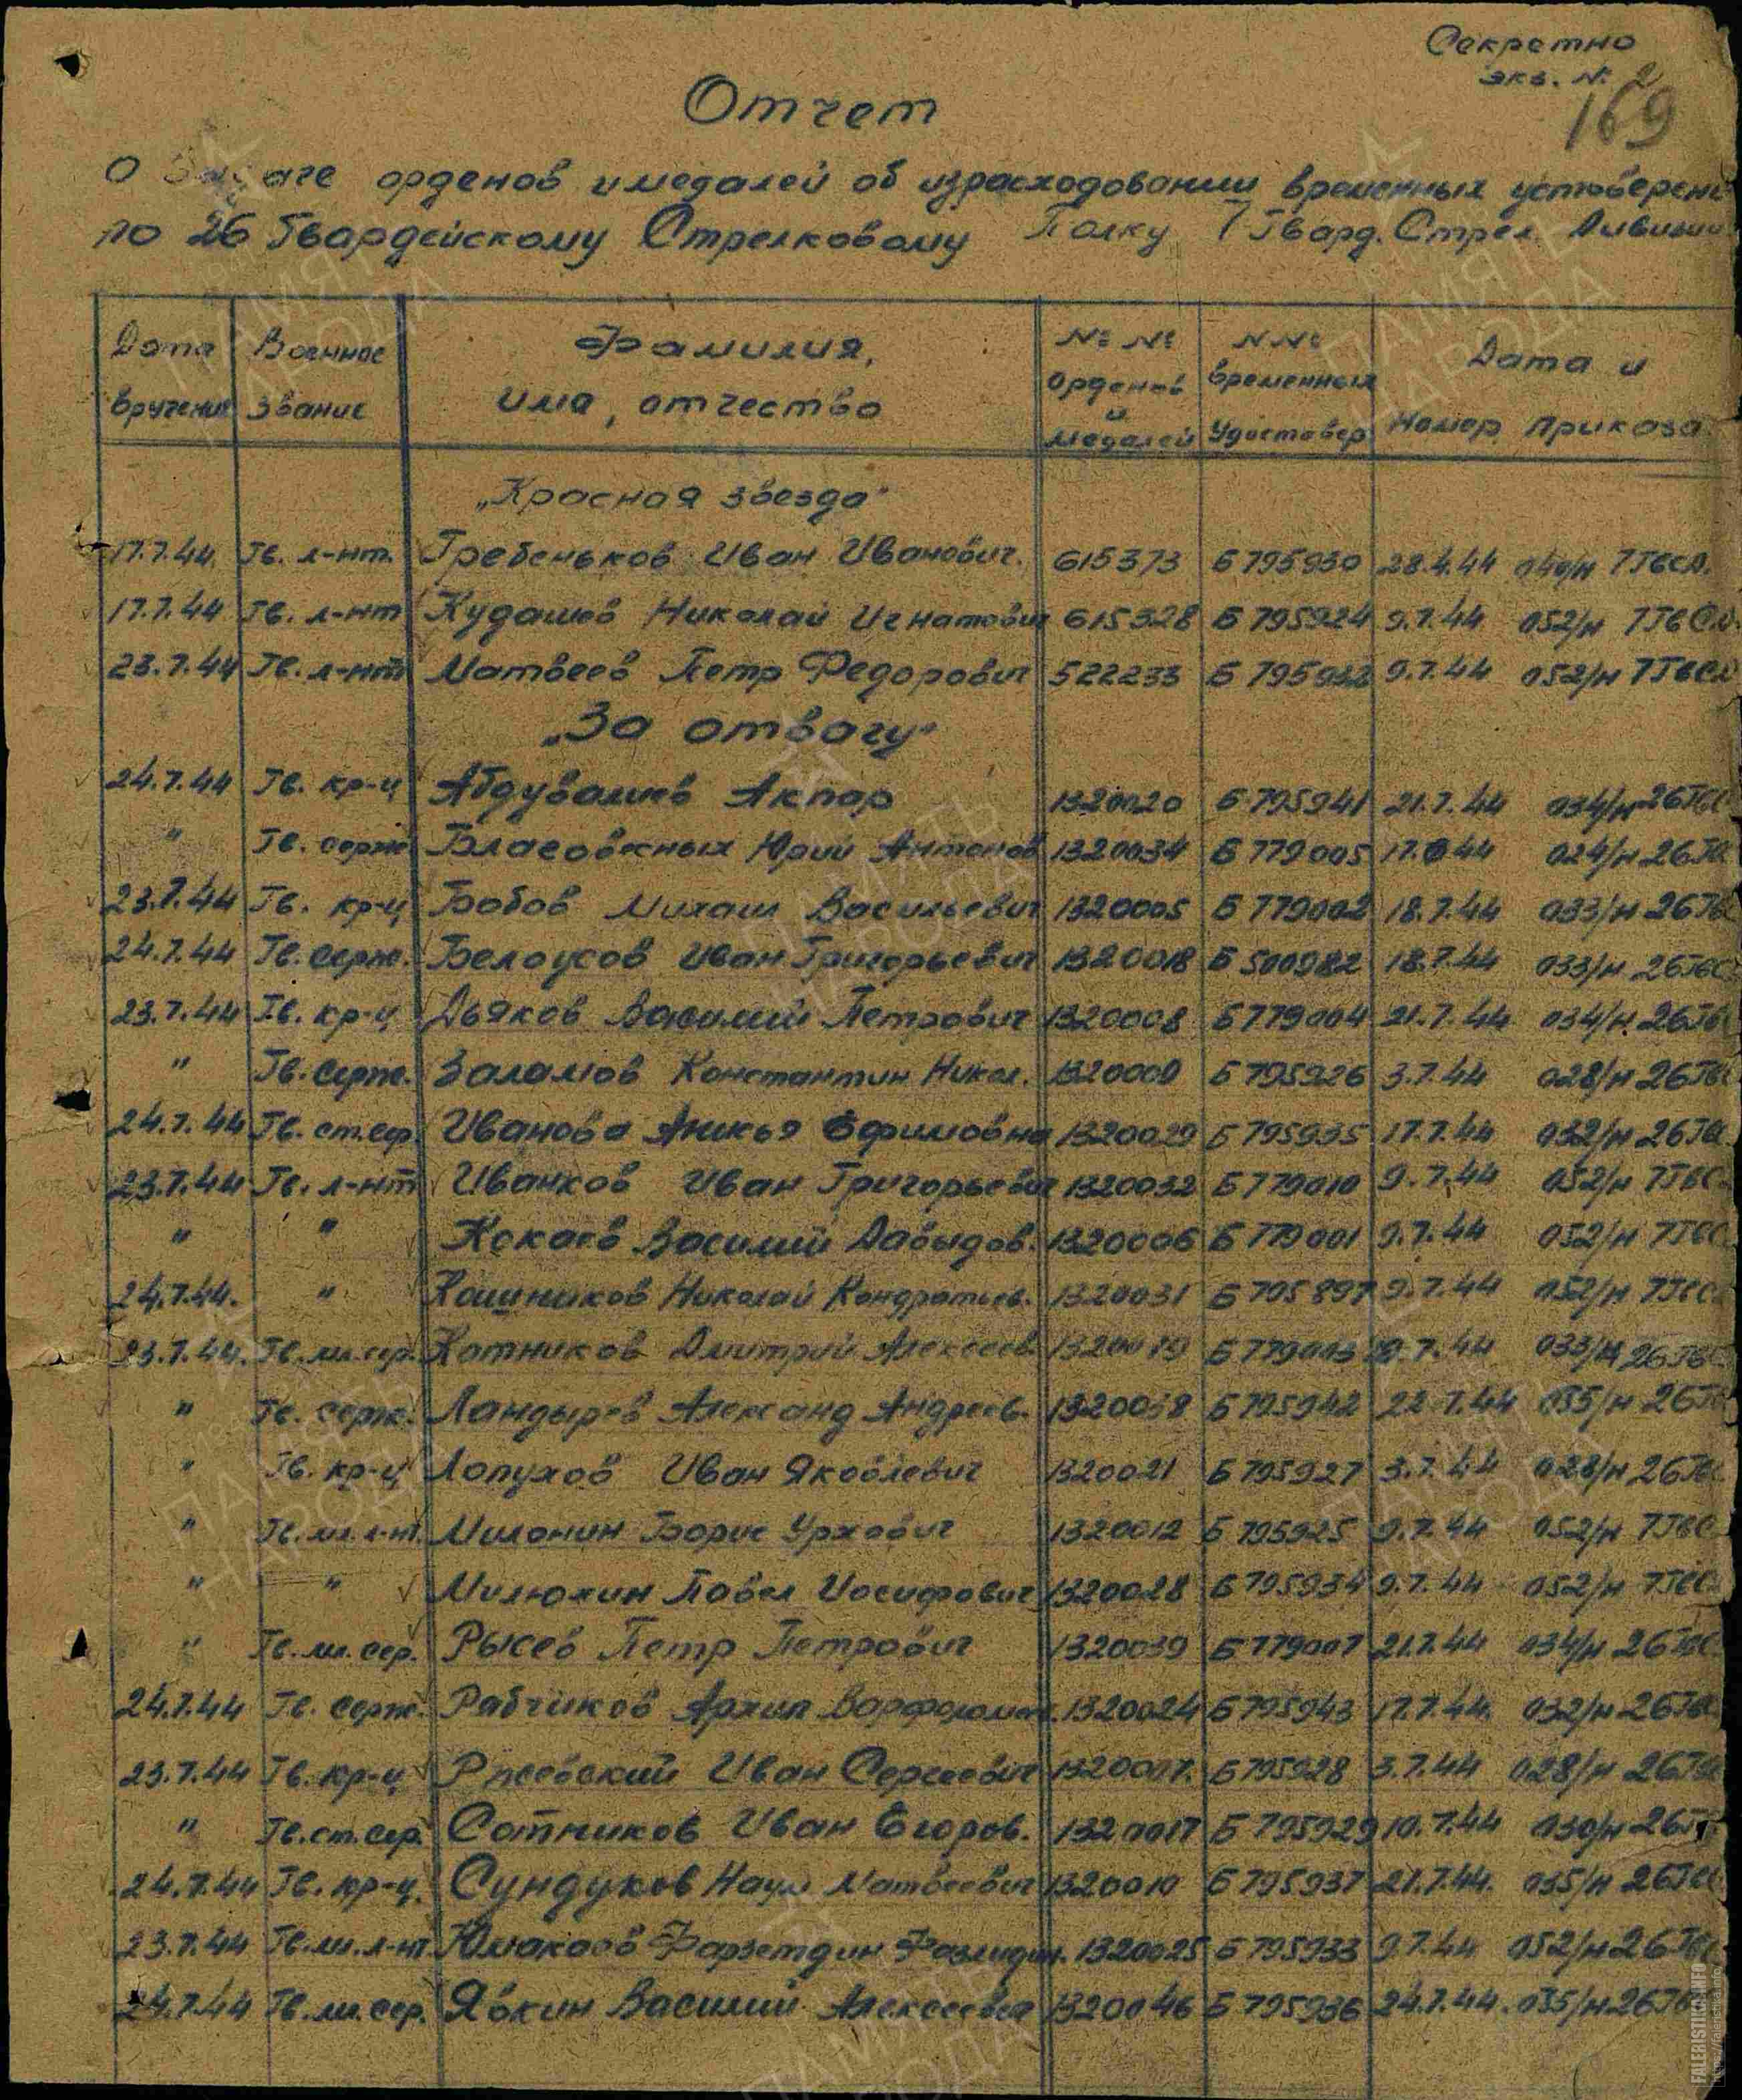 Секретно
экз. № 2
169
Отчет
О орденов и медалей об израсходовании временных
по 26 Гвардейскому Стрелковому Полку 7 Гвард. Стрел. Дивизии
Дата вручения
Военное Звание
Фамилия, имя, отчество
№ № орденов и медалей
№№ временных удостовер
Дата и номер приказа
"Красная звезда"
17.7.44. Гв. л-нт. Гребеньков Иван Иванович. 615373 Б 795930 28.4.44 7 ГвСД.
17.7.44 Гв. л-нт Кудашев Николай Игнатович 615328 Б 795924 9.7.44 052/н 7 ГвСД.
23.7.44 Гв. л-нт Матвеев Петр Федорович 522233 Б 9.7.44 052/н 7 ГвСД
"За отвагу"
24.7.44 Гв. кр-ц Абдувалиев Акпар 1320020 Б 795941 21.7.44 034/н 26 Гвс
" Гв. серж Юрий Антонов 1320034 Б 779005 024/н 26 Гв
23.7.44 Гв. кр-ц Бобов Михаил Васильевич 1320005 Б 779002 18.7.44 033/н 26 Гв
24.7.44 Гв. Серж. Белоусов Иван Григорьевич 1320018 Б 500982 18.7.44 033/н 26 Гвс
23.7.44 Гв. кр-ц Дьяков Василий Петрович 1320008 Б 779004 21.7.44 034/н 26 Гв
" Гв. Серж. Заламов Константин Никол. 1320009 Б 795926 3.7.44 028/н 26 Гв
24.7.44 Гв. ст. сер. Иванова Аникья Ефимовна 1320029 Б 795935 17.7.44 032/н 26 Гв
23.7.44 Гв. л-нт Иванков Иван Григорьевич 1320032 Б 779010 9.7.44 052/н 7 ГвС
" " Кокаев Василий Давыдов. 1320006 Б 779001 9.7.44 052/н 7 ГвС
24.7.44. " Кошников Николай Кондратьев. 1320031 Б 795897 9.7.44 052/н 7 ГвС
23.7.44. Гв. мл. сер. Котников Дмитрий Алексеев. Б 033/н 26 Гв
" Гв. серж. Ландырев Александ Андреев. 1320038 Б 795942 22.7.44 035/н 26 Гв
" Гв. кр-ц Лопухов Иван Яковлевич 1320021 Б 795927 3.7.44 028/н 26 Гв
" Гв. мл. л-нт. Милонин Борис 1320012 Б 795925 9.7.44 052/н 7 ГвС
" " Милюлин Павел Иосифович 1320028 Б 795934 9.7.44 052/н 7 ГвС
" Гв. мл. сер. Рысев Петр Петрович 1320039 Б 779007 21.7.44 034/н 26 Гв
24.7.44 Гв. Серж. Рябчиков Архип Варфоломе. 1320024 Б 795943 17.7.44. 032/н 26 Гв
23.7.44 Гв. кр-ц Ржевский Иван Сергеевич Б 795928 3.7.44 028/н 26 Гв
" Гв. ст. сер. Сотников Иван Егоров. 1320017 Б 795929 10.7.44 030/н 26 Гв
24.7.44 Гв. кр-ц. Сундуков Наум Матвеевич 1320010 Б 795937 21.7.44. 035/н 26 Гв
23.7.44 Гв. мл. л-нт 1320025 Б 795933 9.7.44 052/н 26 Гв
24.7.44 Гв. мл. сер. Явкин Василий Алексеевич 1320046 Б 795936 24.7.44. 035/н 26 Гв
ПАМЯТЬ НАРОДА
FALERISTIKA.INFO
https://faleristika.info/